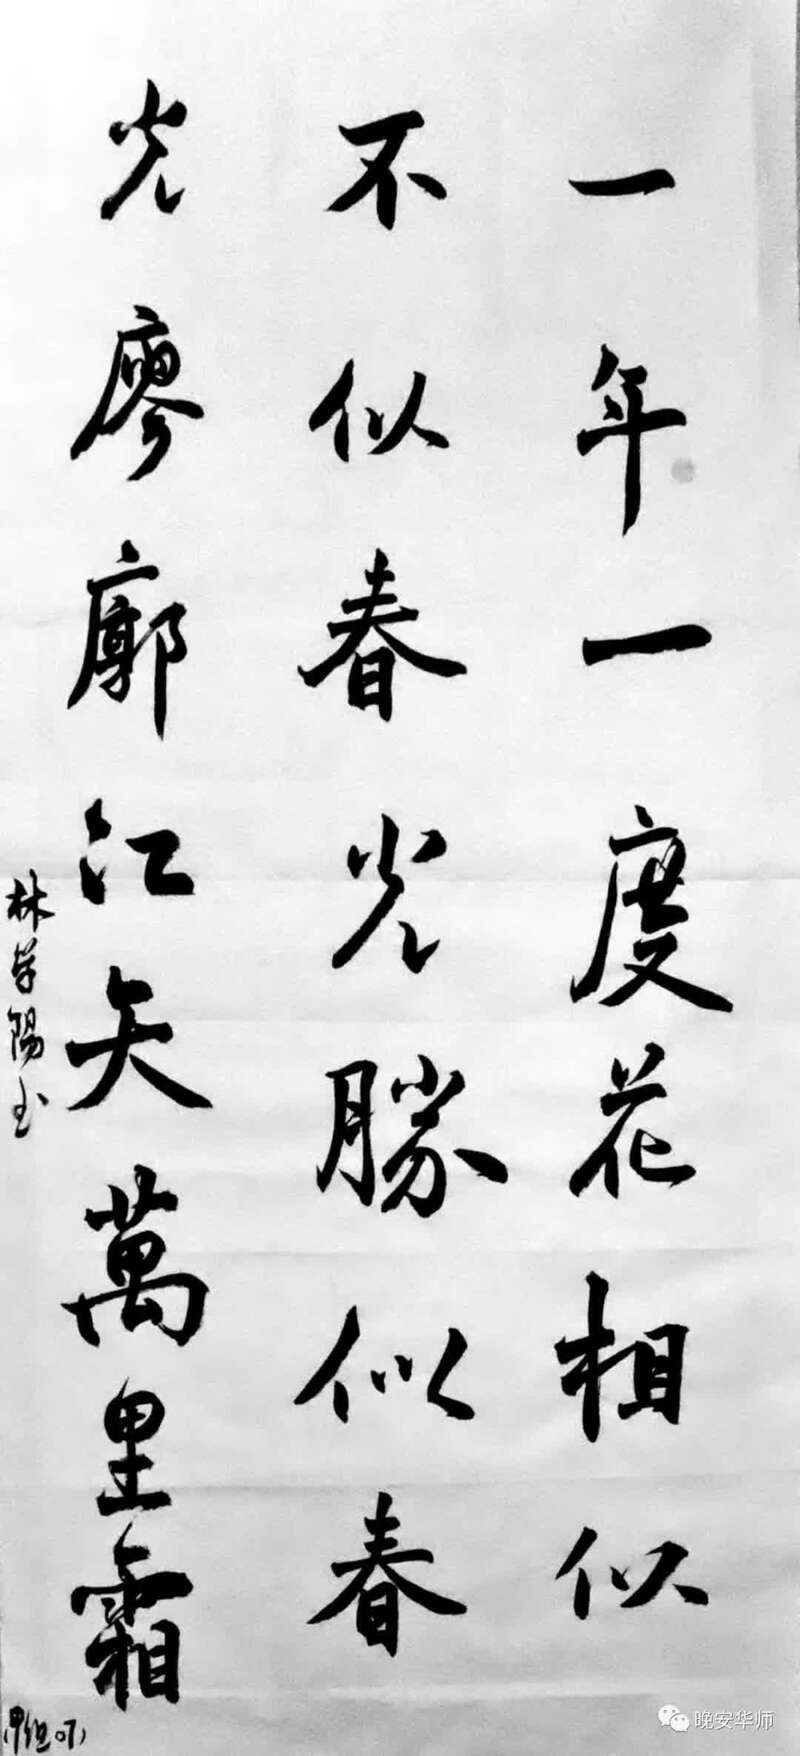 一年一度花相似
不似春光勝似春
光廖廓江天萬里霜
林学陽书
(甲组07)
晚安华师